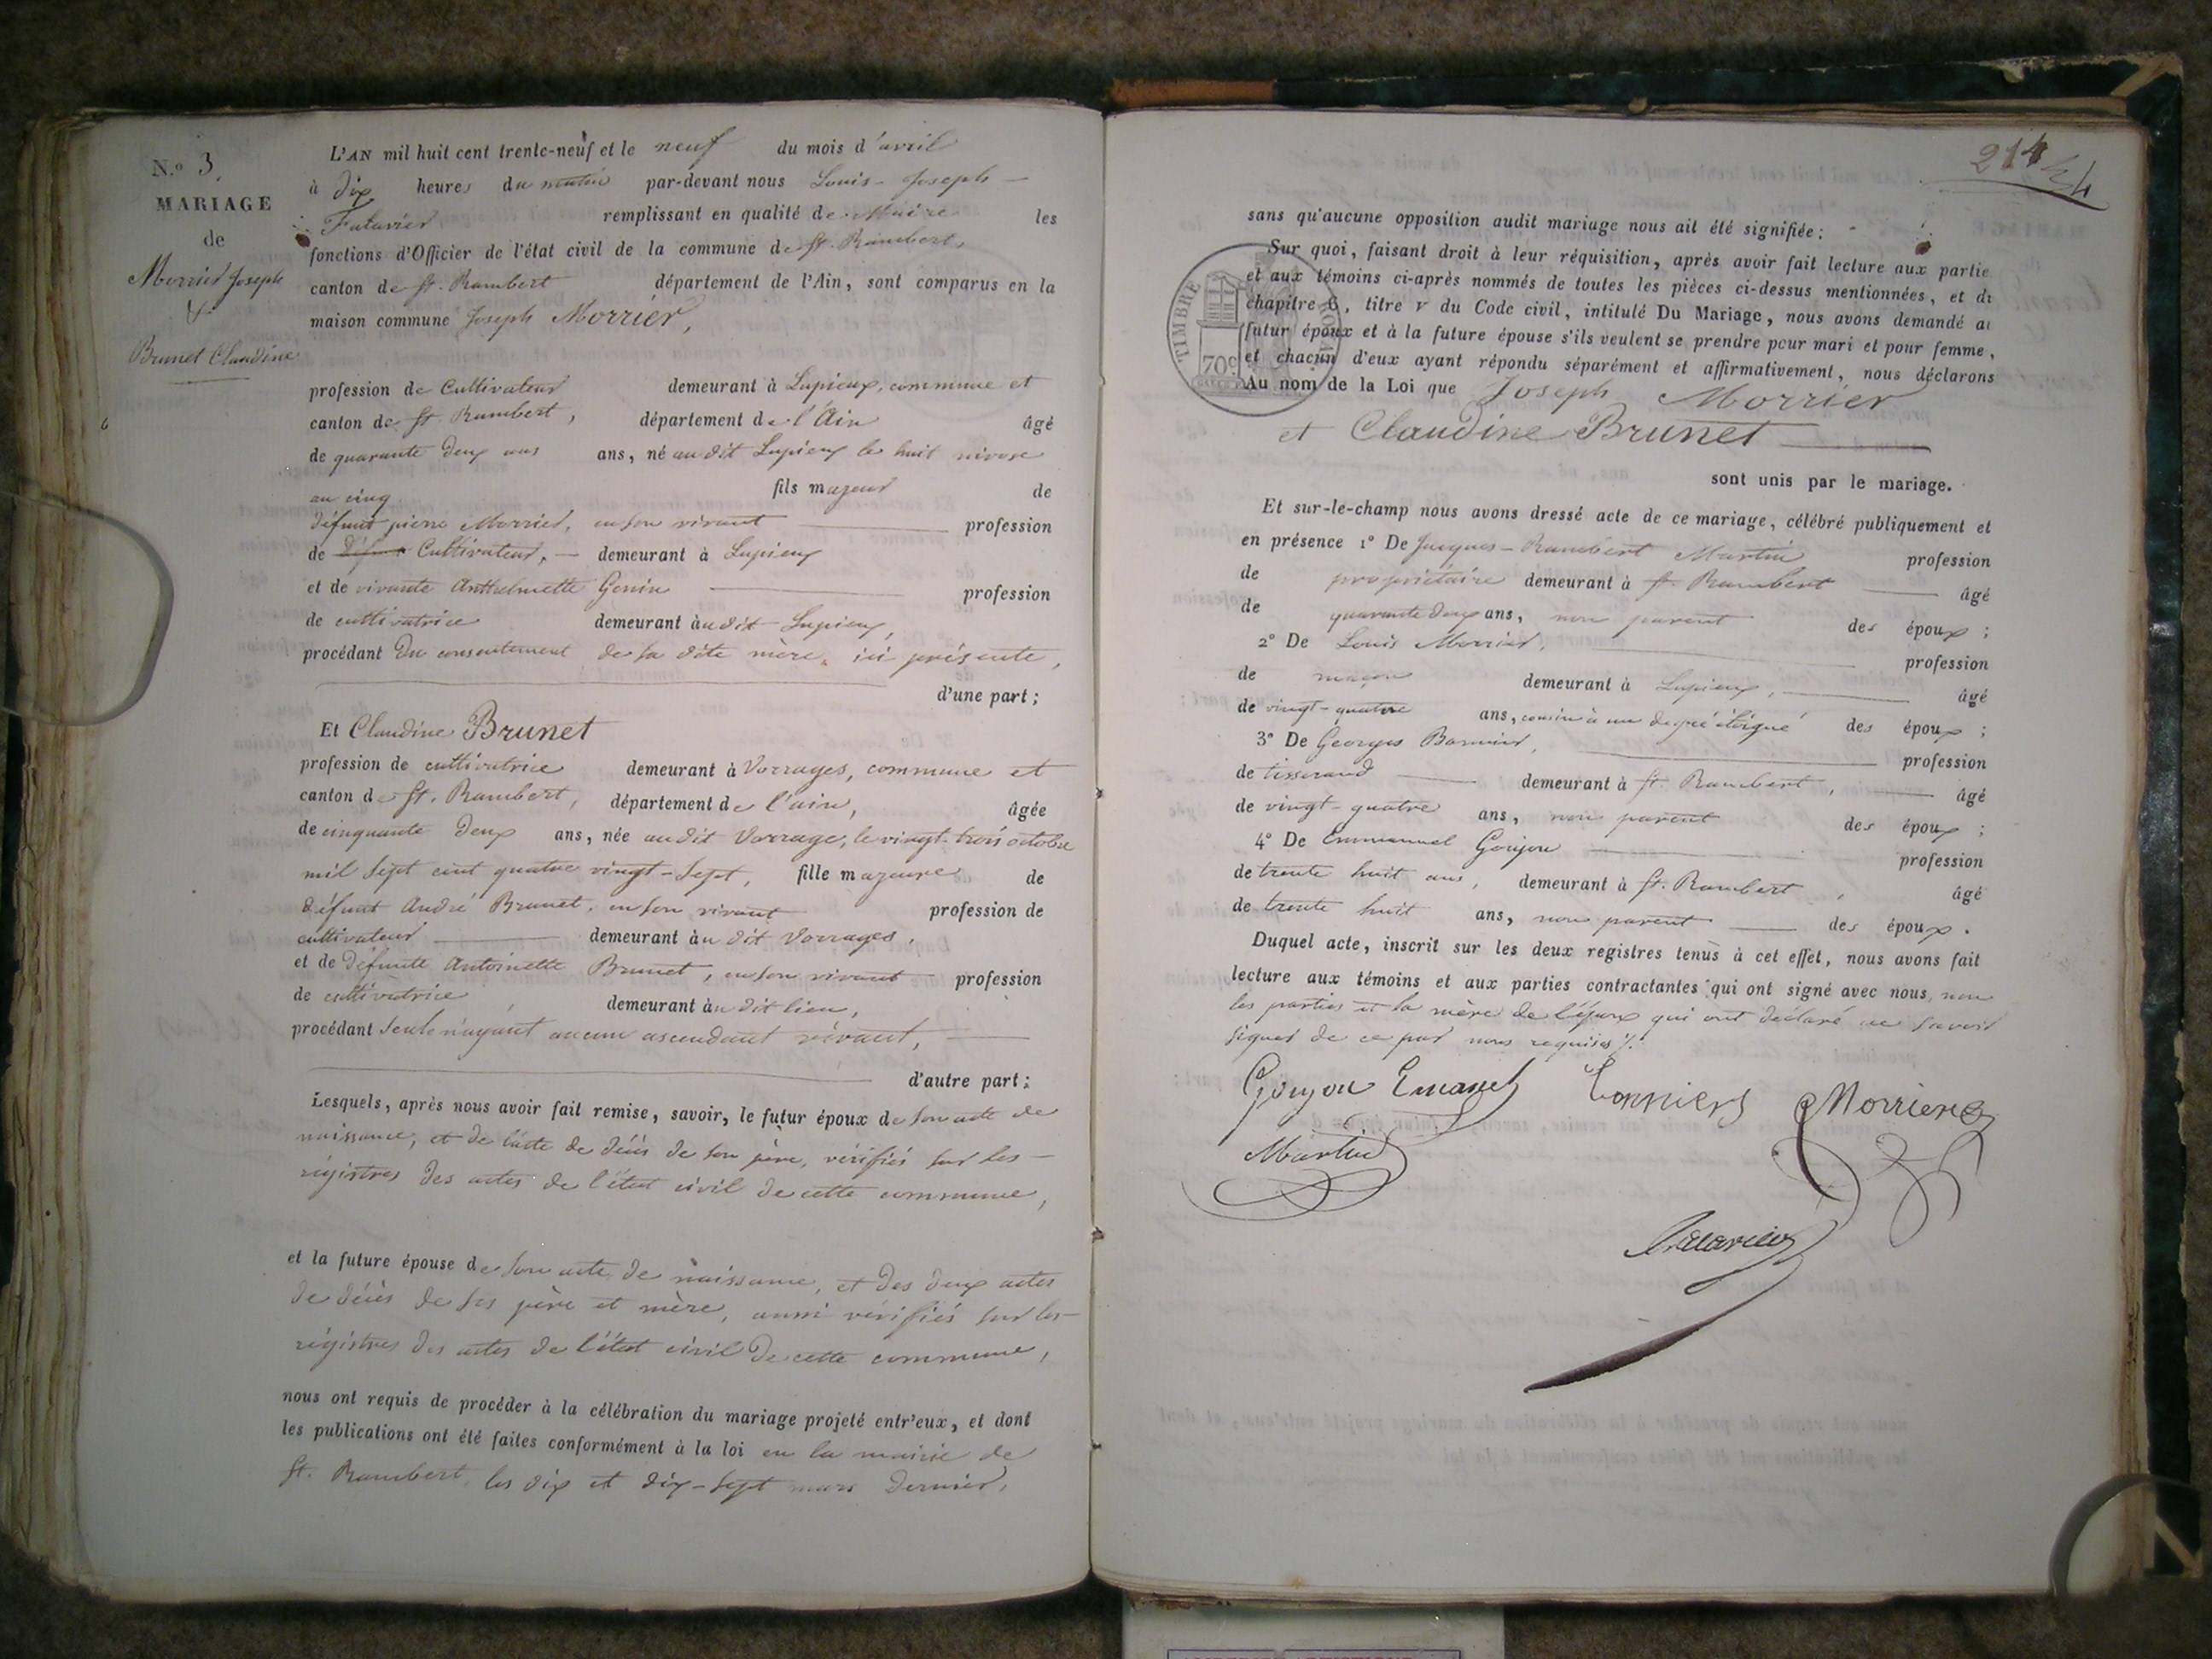 N.º 3
MARIAGE
de
Morrier Joseph
&
Brunet Claudine
L'AN mil huit cent trente-neuf et le neuf du mois d'avril
à dix heures du matin par-devant nous Louis-Joseph
remplissant en qualité de Maire les
fonctions d'Officier de l'état civil de la commune de St. Rambert,
canton de St. Rambert département de l'Ain, sont comparus en la
maison commune Joseph Morrier,
profession de Cultivateur demeurant à Lupieux, commune et
canton de St. Rambert, département de l'Ain âgé
de quarante deux ans ans, né au dit Lupieux le huit nivose
an cinq fils majeur de
défunt pierre Morrier, en son vivant profession
de Cultivateur, demeurant à Lupieux
et de vivante Anthelmette Genin profession
de cultivatrice demeurant àu dit Lupieux,
procédant du consentement de sa dite mère, ici présente,
d'une part ;
Et Claudine Brunet
profession de cultivatrice demeurant à Vorrages, commune et
canton de St. Rambert, département de l'ain, âgée
de cinquante deux ans, née au dit Vorrage, le vingt-trois octobre
mil sept cent quatre vingt-sept, fille majeure de
défunt André Brunet, en son vivant profession de
cultivateur demeurant àu dit Vorrages,
et de défunte Antoinette Brunet, en son vivant profession
de cultivatrice, demeurant àu dit lieu,
procédant seule n'ayant aucun ascendant vivant,
d'autre part ;
Lesquels, après nous avoir fait remise, savoir, le futur époux de son acte de
naissance, et de l'acte de décès de son père, vérifiés sur les
régistres des actes de l'état civil de cette commune,
et la future épouse de son acte de naissance, et des deux actes
de décès de ses père et mère, aussi vérifiés sur les
régistres des actes de l'état civil de cette commune,
nous ont requis de procéder à la célébration du mariage projeté entr'eux, et dont
les publications ont été faites conformément à la loi en la mairie de
St. Rambert, les dix et dix-sept mars dernier,
214
sans qu'aucune opposition audit mariage nous ait été signifiée :
Sur quoi, faisant droit à leur réquisition, après avoir fait lecture aux partie
et aux témoins ci-après nommés de toutes les pièces ci-dessus mentionnées, et du
chapitre 6, titre v du Code civil, intitulé Du Mariage, nous avons demandé au
futur époux et à la future épouse s'ils veulent se prendre pour mari et pour femme,
et chacun d'eux ayant répondu séparément et affirmativement, nous déclarons
Au nom de la Loi que Joseph Morrier
et Claudine Brunet
TIMBRE ROYAL
70c
sont unis par le mariage.
Et sur-le-champ nous avons dressé acte de ce mariage, célébré publiquement et
en présence 1º De Jacques-Rambert Martin profession
de propriétaire demeurant à St. Rambert âgé
de quarante deux ans, non parent des époux ;
2º De Louis Morrier, profession
de maçon demeurant à Lupieux, âgé
de vingt-quatre ans, cousin à un degré éloigné des époux ;
3º De Georges profession
de tisserand demeurant à St. Rambert, âgé
de vingt-quatre ans, non parent des époux ;
4º De Emmanuel Goujon profession
de trente huit ans, demeurant à St. Rambert, âgé
de trente huit ans, non parent des époux.
Duquel acte, inscrit sur les deux registres tenus à cet effet, nous avons fait
lecture aux témoins et aux parties contractantes qui ont signé avec nous, non
les parties et la mère de l'époux qui ont déclaré ne savoir
signer de ce par nous requises %.
Goujon Emanuel Morrier
Martin